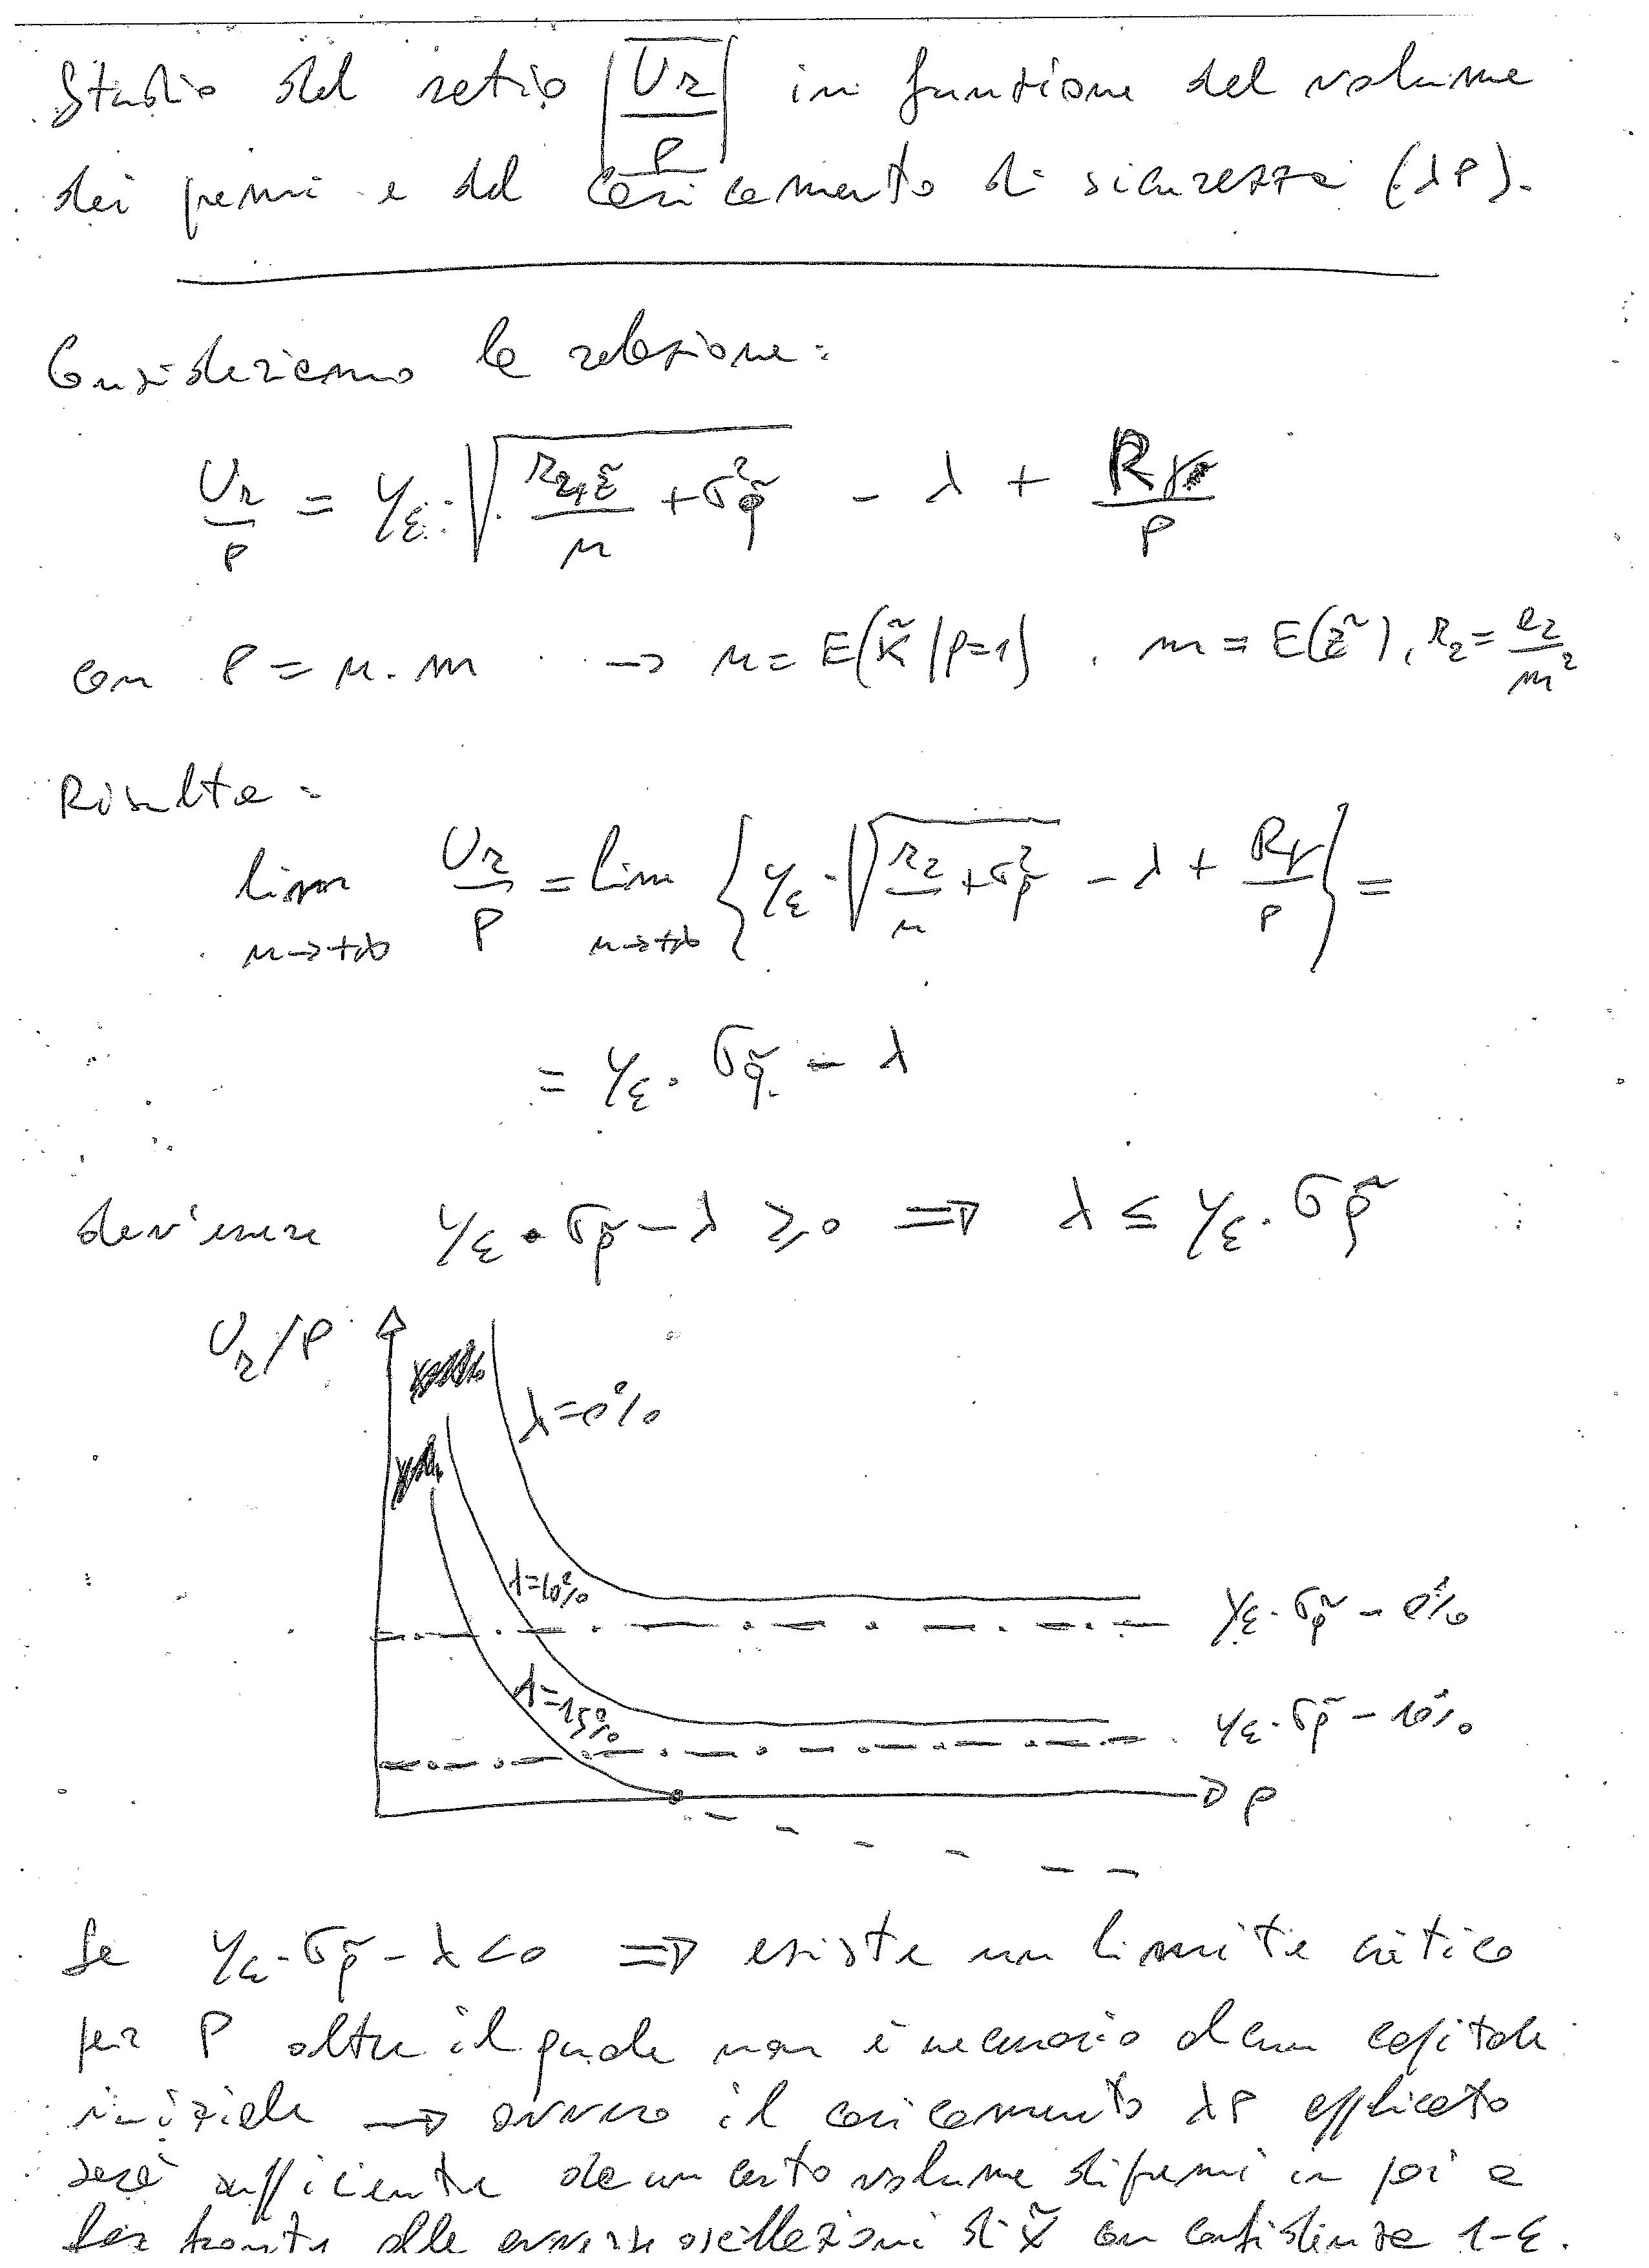 Studio del ratio |U_r/P| in funzione del volume
dei premi e del caricamento di sicurezza (λP).
Consideriamo la relazione:
U_r/P = y_ε · √(r_{2,z̃}/n + σ²_q̃) - λ + R_γ/P
con P = n · m → n = E(k̃/p=1) , m = E(z̃), r_2 = a_2/m²
Risulta:
lim_{n→+∞} U_r/P = lim_{n→+∞} { y_ε · √(r_2/n + σ²_q̃) - λ + R_γ/P } =
= y_ε · σ_q̃ - λ
dev'essere y_ε · σ_q̃ - λ ≥ 0 ⇒ λ ≤ y_ε · σ_q̃
U_r/P
λ=0%
λ=10%
y_ε · σ_q̃ - 0%
λ=15%
y_ε · σ_q̃ - 10%
P
Se y_ε · σ_q̃ - λ < 0 ⇒ esiste un limite critico
per P oltre il quale non è necessario alcun capitale
iniziale → ovvero il caricamento λP applicato
sarà sufficiente da un certo volume di premi in poi a
far fronte alle avverse oscillazioni di X̃ con confidenza 1-ε.